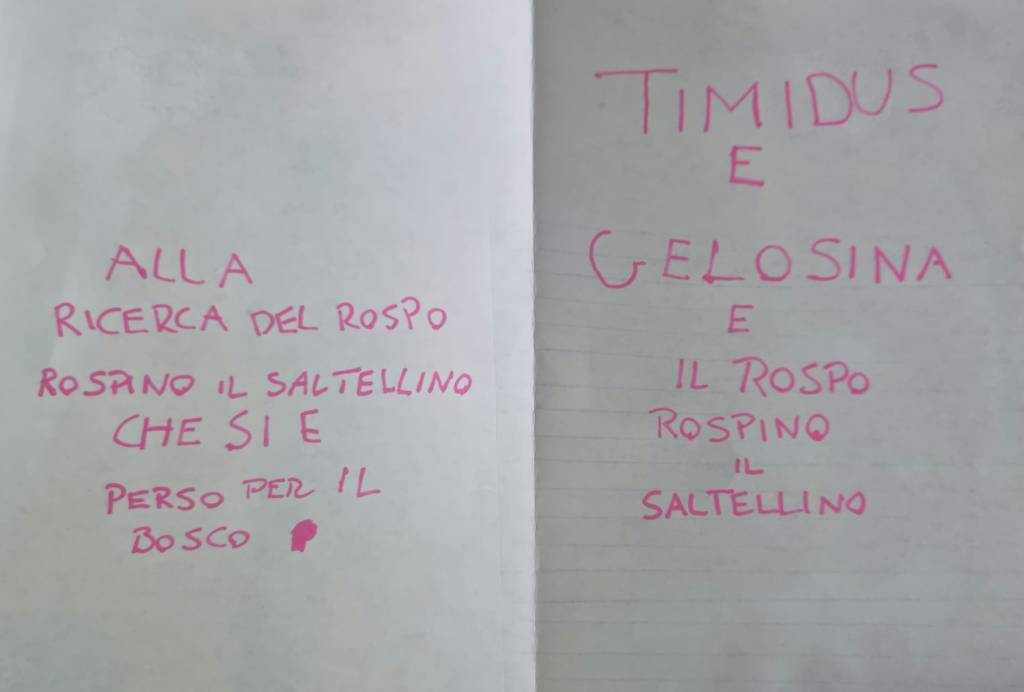 ALLA
RICERCA DEL ROSPO
ROSPINO IL SALTELLINO
CHE SI E
PERSO PER IL
BOSCO
TIMIDUS
E
GELOSINA
E
IL ROSPO
ROSPINO
IL
SALTELLINO